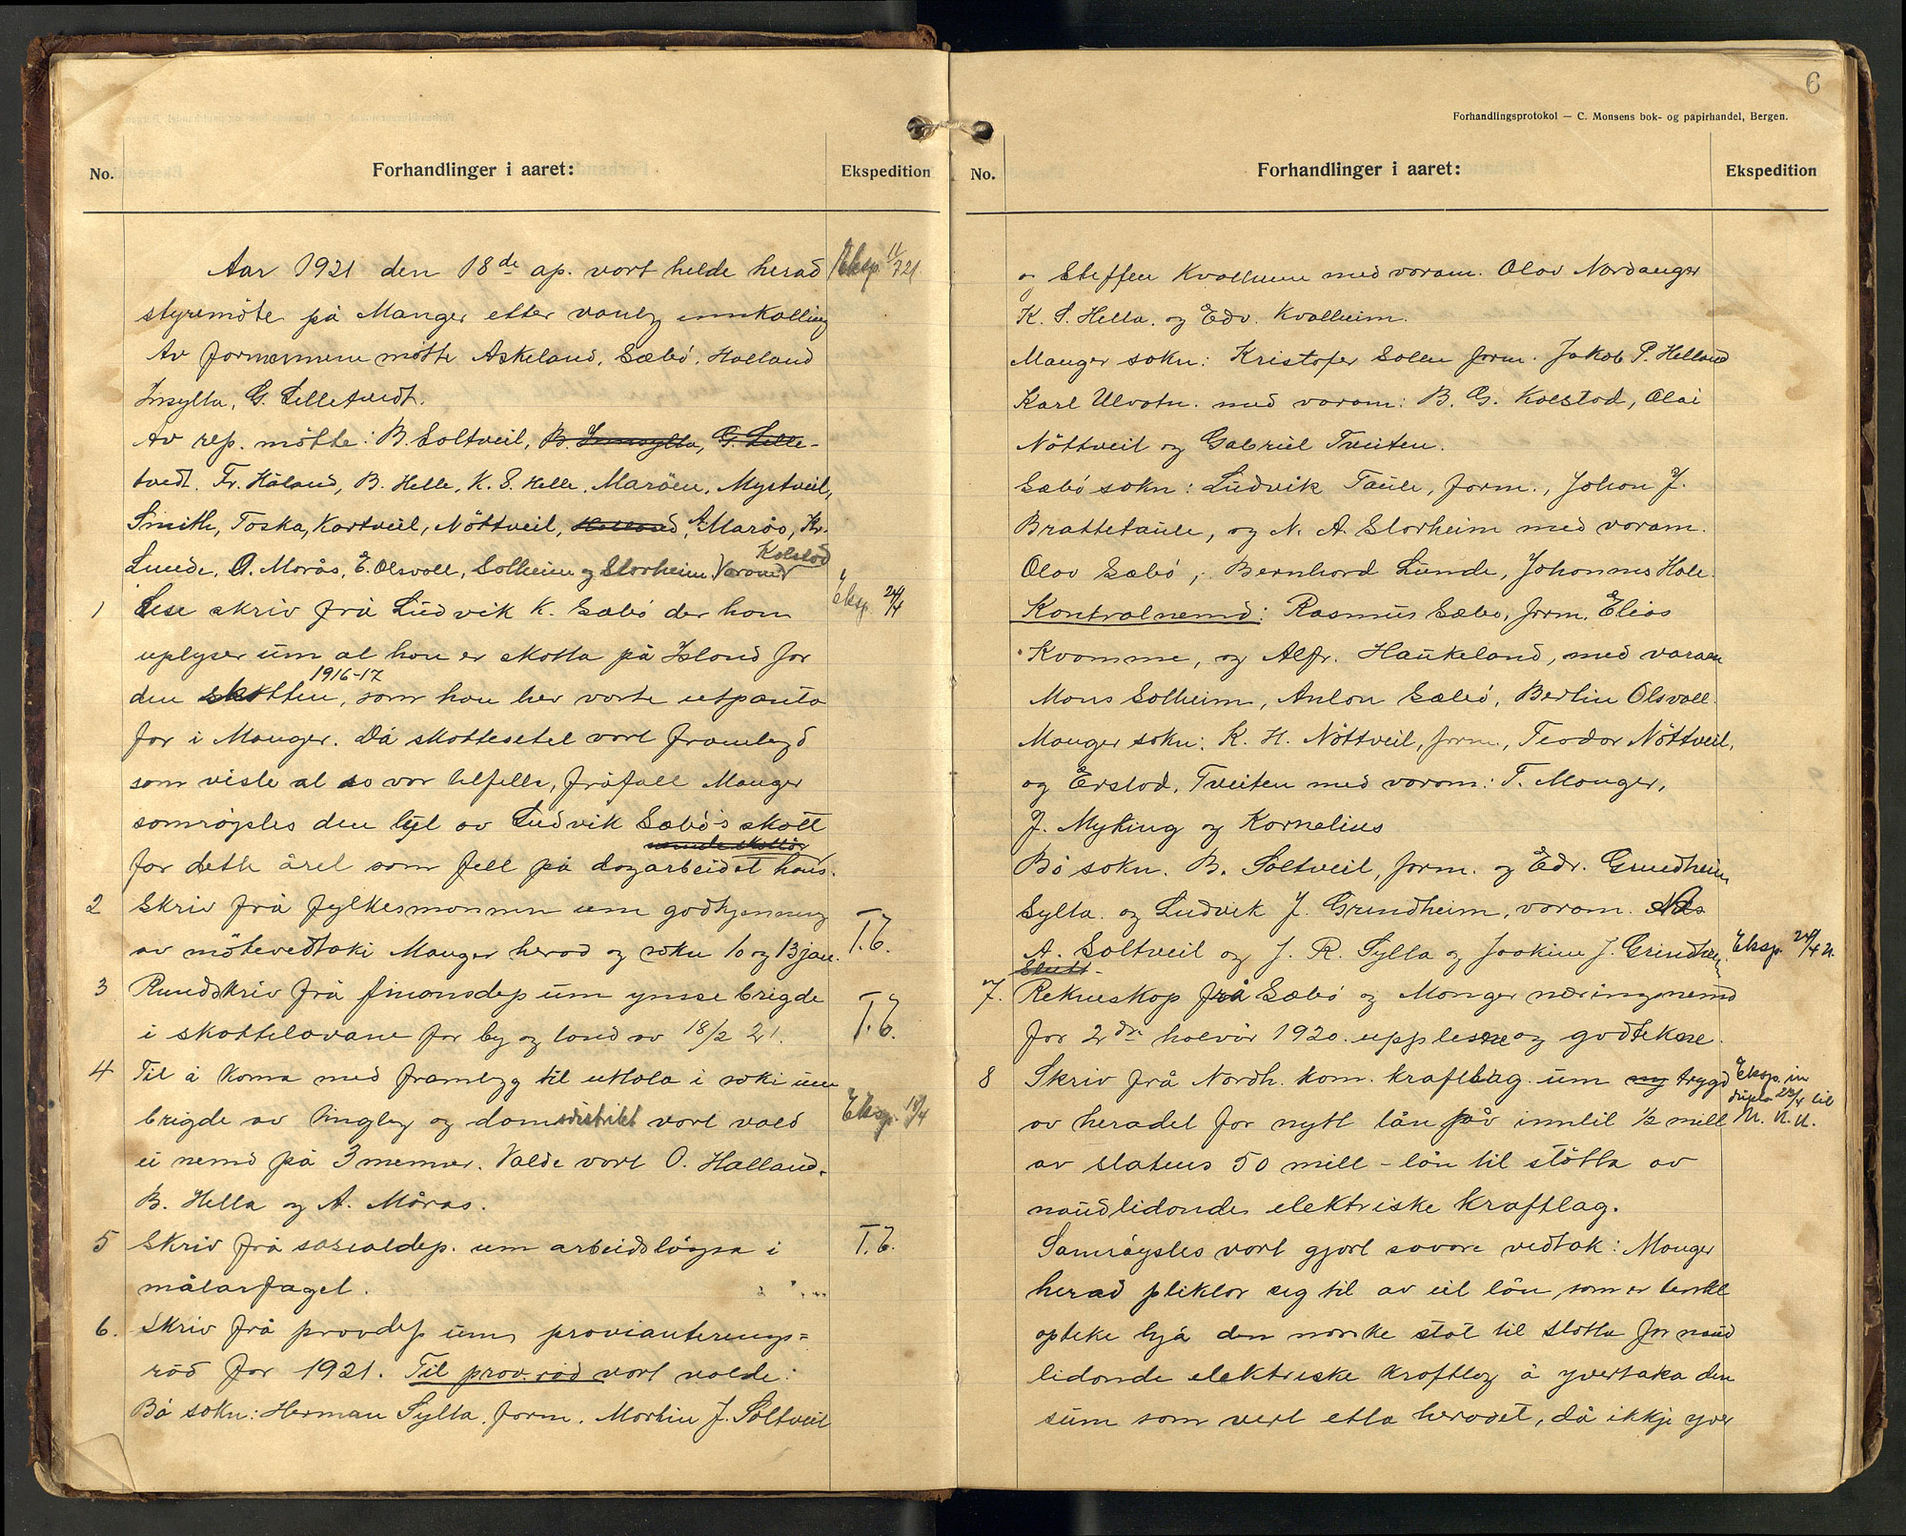 No.
Forhandlinger i aaret:
Ekspedition
Aar 1921 den 18de ap. vart helde herad
Eksp. 11/7 21.
styremöte på Manger etter vanleg innkalling
Av formennene mötte Askeland, Sæbö, Halland
Insylta, G. Lilletvedt.
Av rep. mötte: B. Soltveil, B. Innsylta, G. Lille-
tvedt. Fr. Håland, B. Helle, K. S. Helle, Maröen, Mystveil,
Smith, Toska, Kartveil, Nöttveil, A. Marås, Kr.
Kolstad
Lunde, O. Morås, E. Olsvoll, Solheim og Storheim. Varamd
1 Lese skriv frå Ludvik K. Sæbö der han
Eksp. 24/4
uplyser um at han er skatta på Island for
1916-17
den skatten, som han hev vorte utpanta
for i Manger. Då skattesetel vart framlagd
som viste at so var tilfelle, fråfall Manger
samröystes den lyt av Ludvik Sæbö's skatt
for dette året som fell på dagarbeidet hans.
2 Skriv frå fylkesmannen um godkjenning
av mötevedtaki Manger herad og sokn 10 og 13 jan.
T.E.
3 Rundskriv frå finansdep um ymse brigde
i skattelovane for by og land av 18/2 21.
T.E.
4 Til å koma med framlegg til uttala i saki um
brigde av tingleg og domsdistrikt vart vald
Eksp. 19/4
ei nemd på 3 menner. Valde vart O. Halland,
B. Hella og A. Måras.
5 Skriv frå sosialdep. um arbeidslöysa i
T.E.
målarfaget.
6. Skriv frå provdep um provianterings-
råd for 1921. Til prov.råd vart valde:
Bö sokn: Herman Sylta, form. Martin J. Soltveil
6
Forhandlingsprotokol — C. Monsens bok- og papirhandel, Bergen.
No.
Forhandlinger i aaret:
Ekspedition
og Steffen Kvalheim med varam. Olav Nordanger
K. S. Hella, og Edv. Kvalheim.
Manger sokn: Kristofer Solem form. Jakob P. Helland
Karl Ulvatn. med varam: B. G. Kolstad, Olai
Nöttveit og Gabriel Tveiten.
Sæbö sokn: Ludvik Taule, form., Johan J.
Brattetaule, og N. A. Storheim med varam.
Olav Sæbö, Bernhard Lunde, Johannes Hole.
Kontrolnemd: Rasmus Sæbö, form, Elias
Kvamme, og Alfr. Haukeland, med varam
Mons Solheim, Anton Sæbö, Bertin Olsvoll.
Manger sokn: K. H. Nöttveit, form., Teodor Nöttveit,
og Erstad, Tveiten med varam: T. Manger,
J. Myking og Kornelius
Bö sokn. B. Soltveil, form. og Edv. Grindheim
Sylta. og Ludvik J. Grindheim, varam. Nils
A. Soltveit og J. R. Sylta og Joakim J. Grindheim.
Eksp. 24/4 21.
7. Rekneskap frå Sæbö og Manger næringsnemd
for 2dre halvår 1920. upplesne og godtekne.
8 Skriv frå Nordh. kom. kraftlag um trygd
Eksp. in
duplo 23/4 til
av heradet for nytt lån på inntil 1/2 mill
N. K. K.
av statens 50 mill-lån til stötta av
naudlidande elektriske kraftlag.
Samröystes vart gjort sovore vedtak: Manger
herad pliktar seg til av eit lån, som er tenkt
opteke hjå den norske stat til stötta for naud
lidande elektriske kraftlag å yvertaka den
sum som vert etla heradet, då ikkje yver